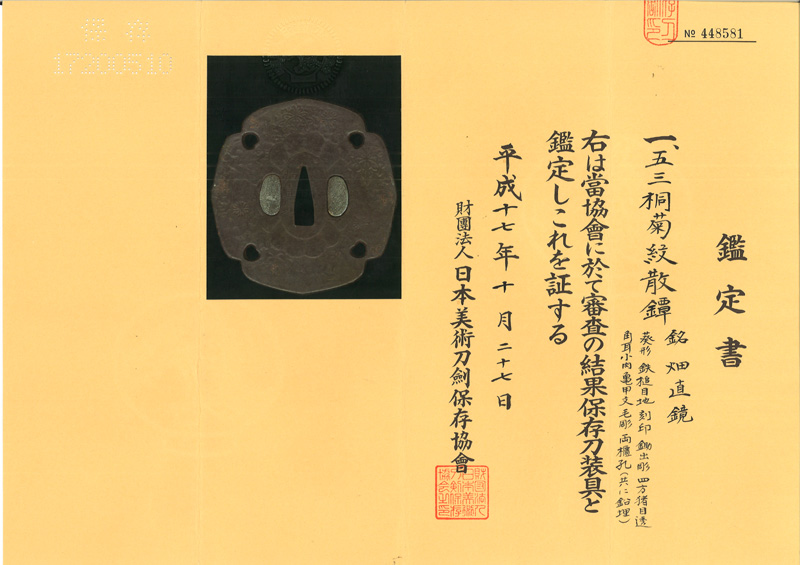 鑑定書
No 448581
一、五三桐菊紋散鐔
銘 畑直鏡
葵形 鉄槌目地 刻印 鋤出彫 四方猪目透
角耳小肉 亀甲文毛彫 両櫃孔(共に鉛埋)
右は當協會に於て審査の結果保存刀装具と
鑑定しこれを証する
平成十七年十月二十七日
財團法人 日本美術刀劍保存協會
17200510